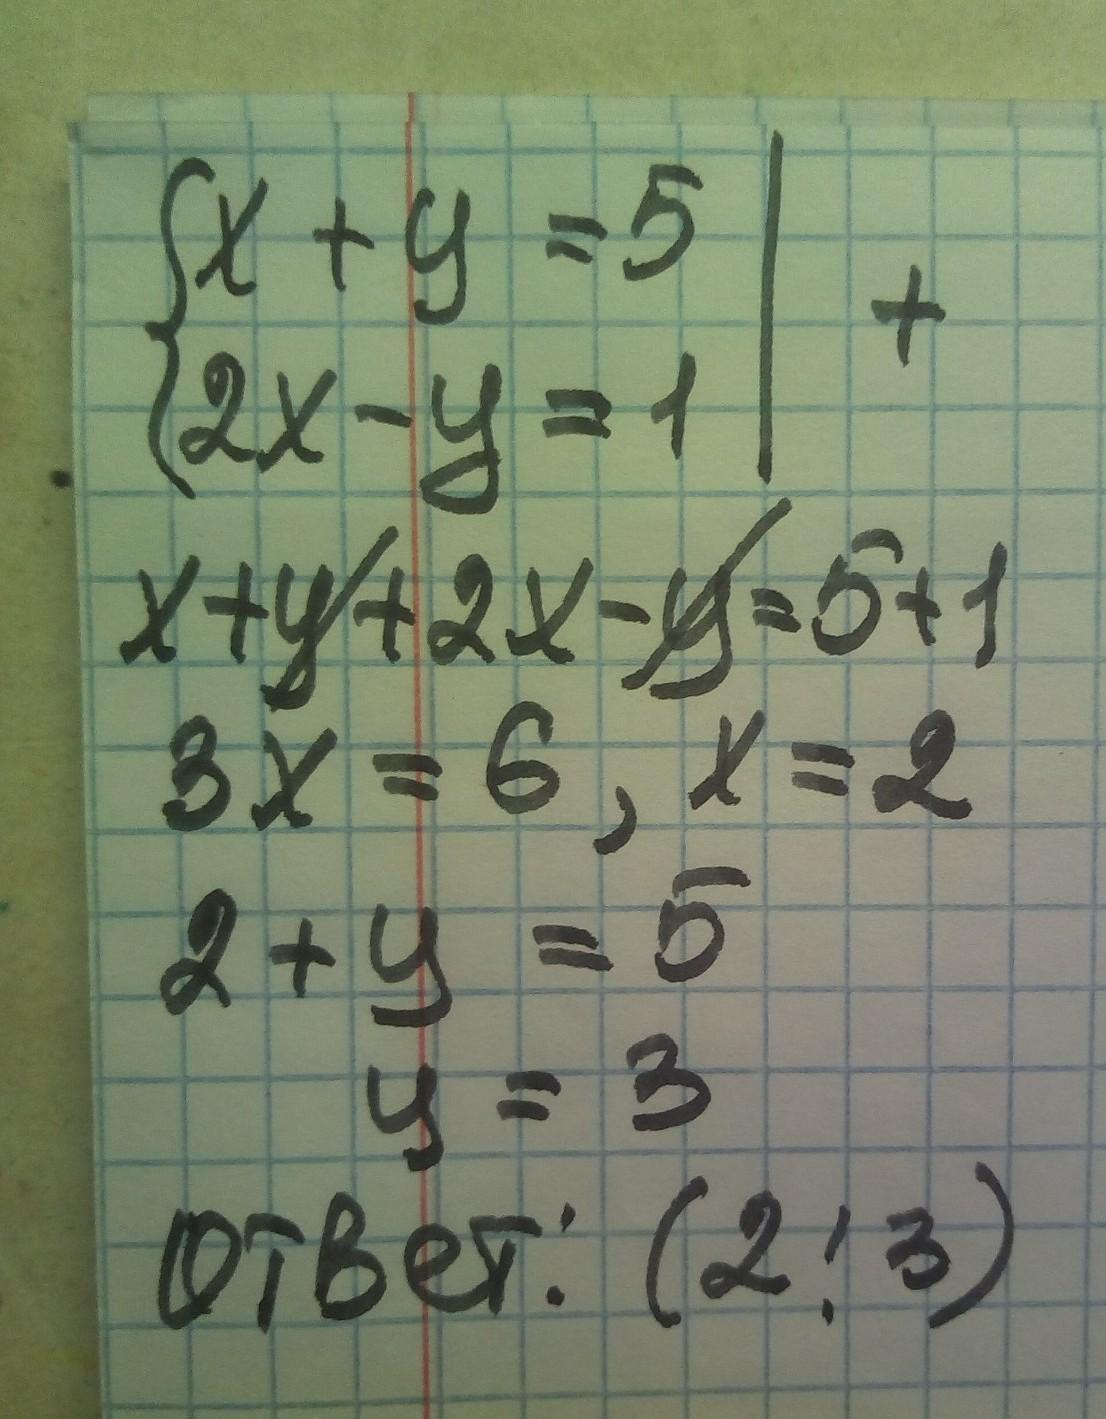 {x + y = 5 | +
2x - y = 1
x + y + 2x - y = 5 + 1
3x = 6, x = 2
2 + y = 5
y = 3
Ответ: (2; 3)